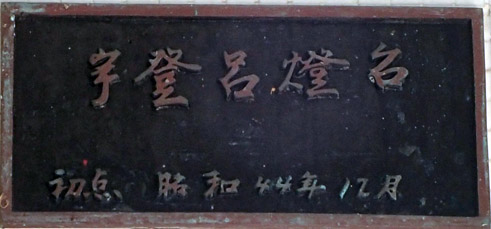 宇登呂燈台
初点 昭和44年12月